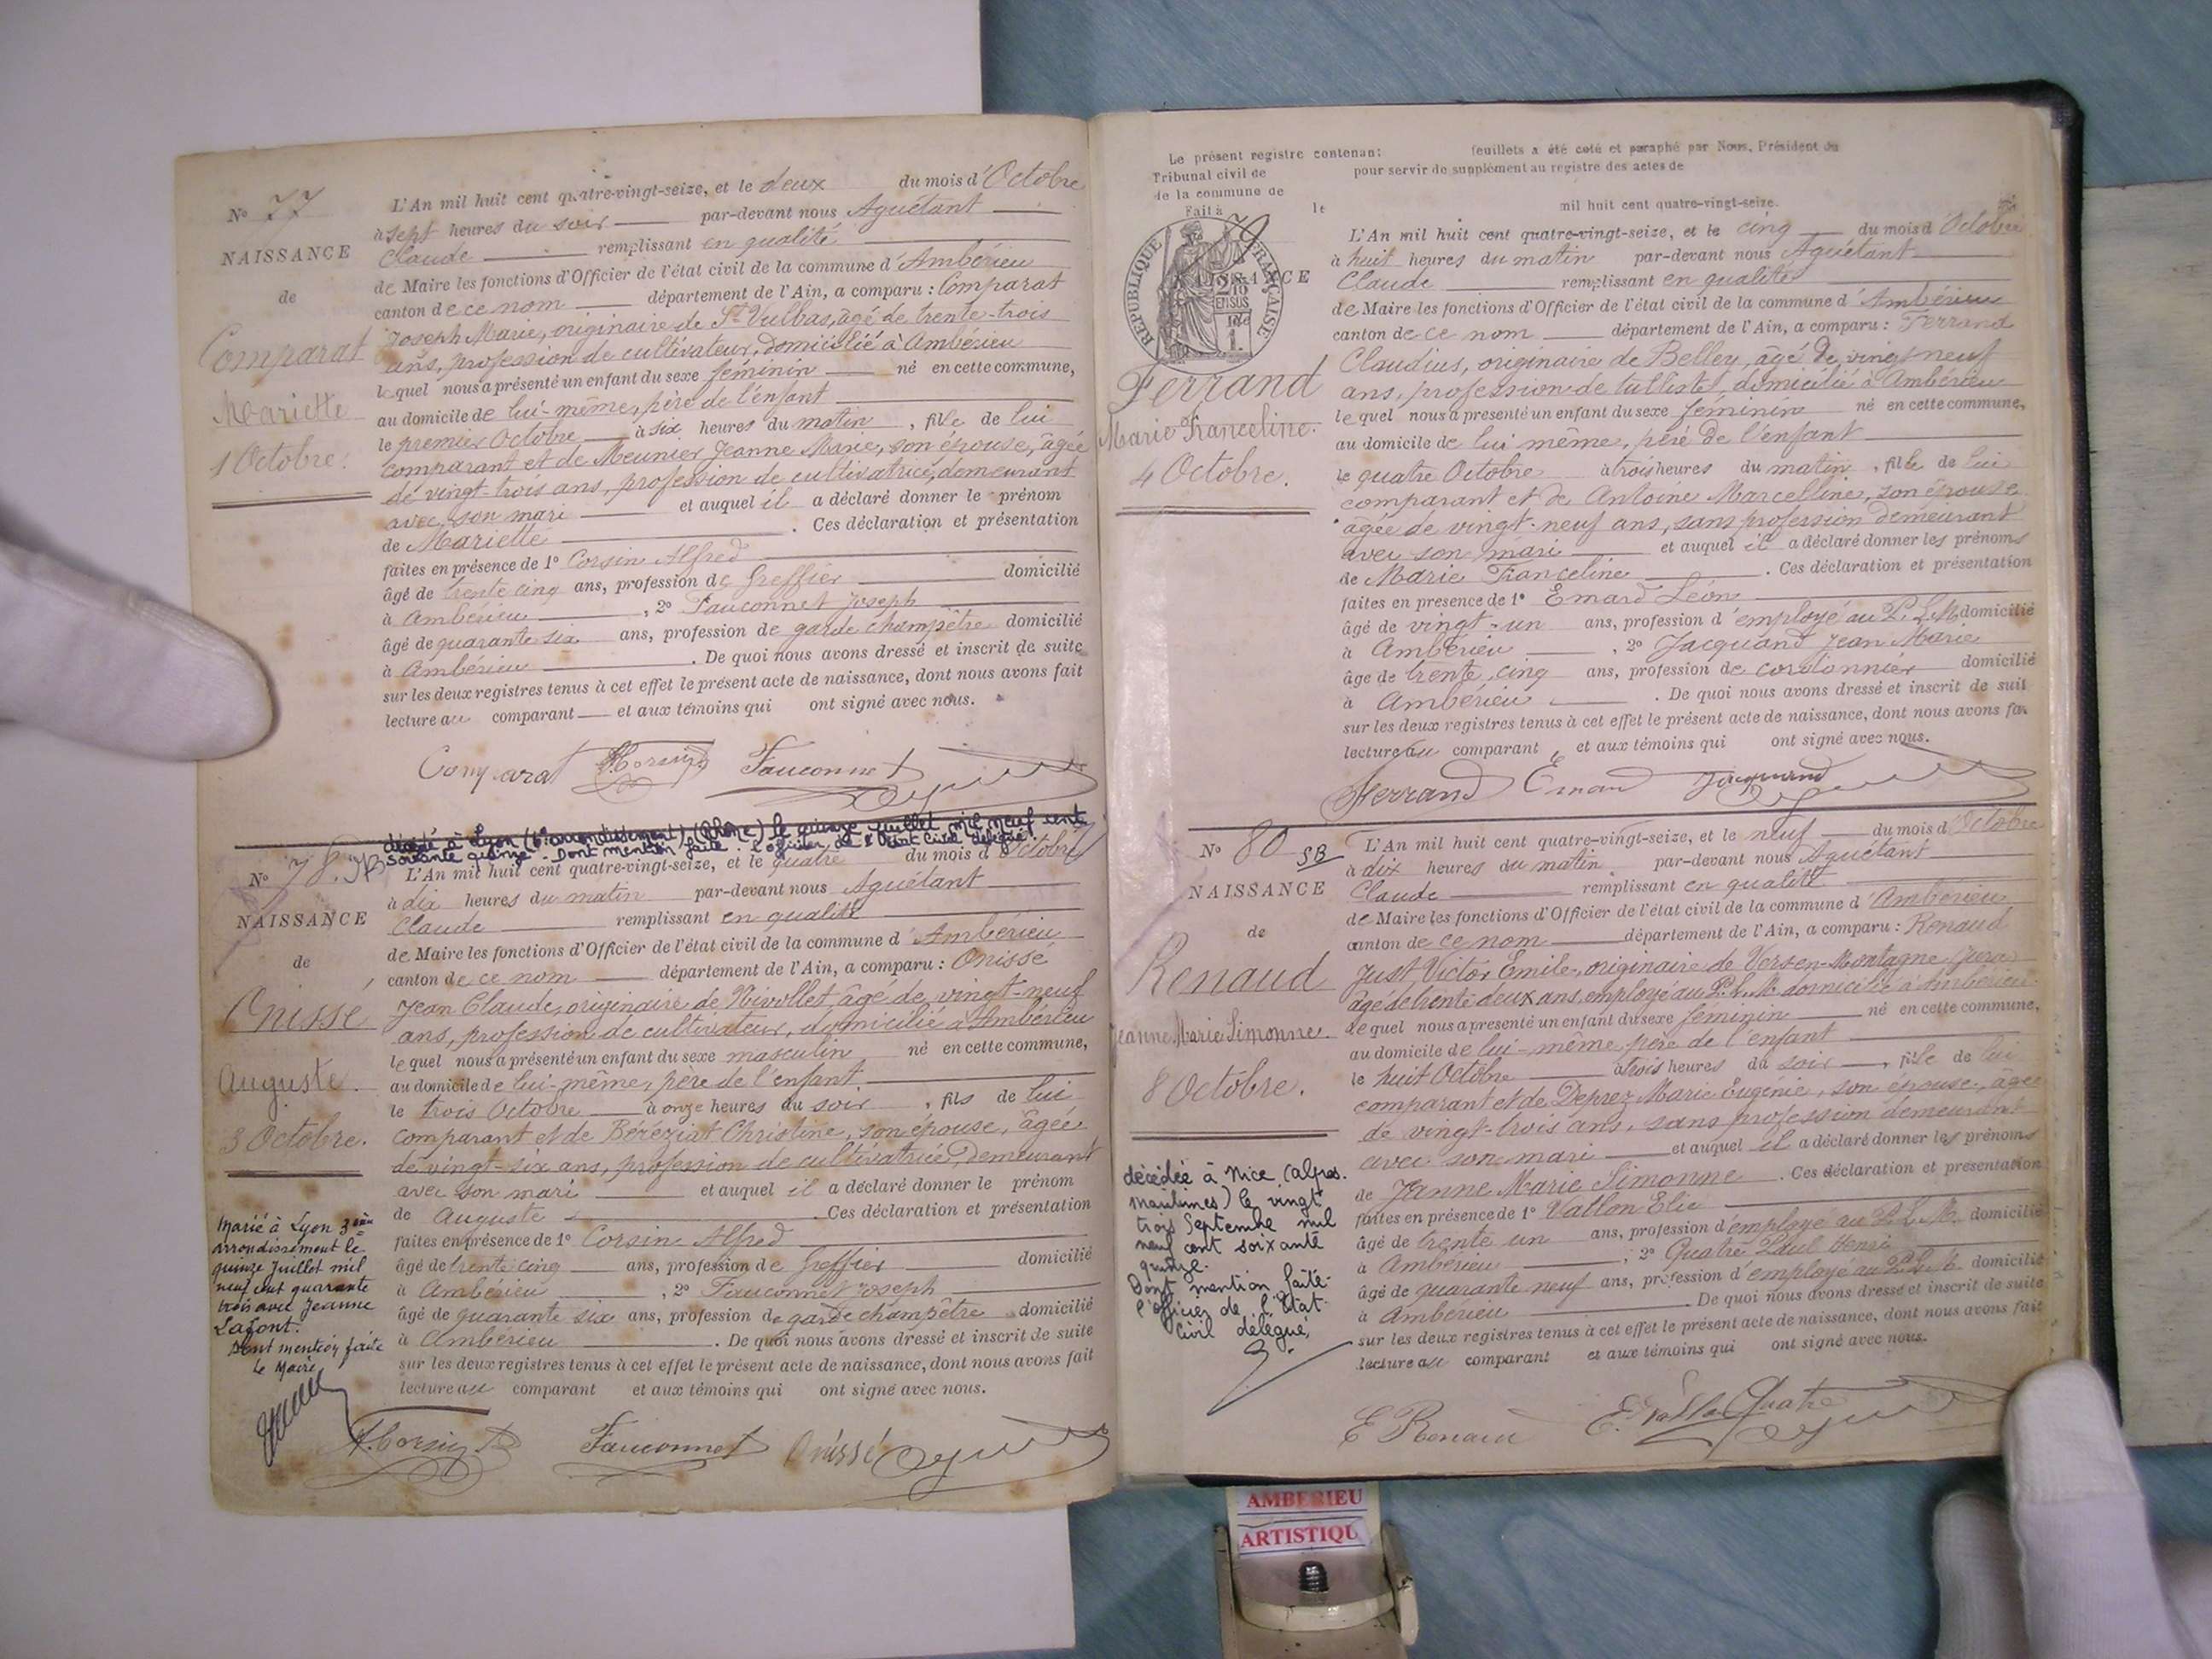 N° 77
NAISSANCE
de
Comparat
Mariette
1 Octobre.
L'An mil huit cent quatre-vingt-seize, et le deux du mois d'Octobre
à sept heures du soir par-devant nous Aguétant
Claude remplissant en qualité
de Maire les fonctions d'Officier de l'état civil de la commune d'Ambérieu
canton de ce nom département de l'Ain, a comparu : Comparat
Joseph Marie, originaire de St Vulbas, âgé de trente-trois
ans, profession de cultivateur, domicilié à Ambérieu
lequel nous a présenté un enfant du sexe féminin né en cette commune,
au domicile de lui-même, père de l'enfant
le premier Octobre à six heures du matin, fille de lui
comparant et de Meunier Jeanne Marie, son épouse, âgée
de vingt-trois ans, profession de cultivatrice, demeurant
avec son mari et auquel il a déclaré donner le prénom
de Mariette. Ces déclaration et présentation
faites en présence de 1° Corsin Alfred
âgé de trente cinq ans, profession de Greffier domicilié
à Ambérieu, 2° Fauconnet Joseph
âgé de quarante six ans, profession de garde champêtre domicilié
à Ambérieu. De quoi nous avons dressé et inscrit de suite
sur les deux registres tenus à cet effet le présent acte de naissance, dont nous avons fait
lecture au comparant et aux témoins qui ont signé avec nous.
Comparat A. Corsin Fauconnet
décédé à Lyon (Rhône) le quinze juillet mil neuf cent
soixante quinze. Dont mention faite. L'officier de l'Etat Civil délégué.
N° 78
NAISSANCE
de
Onissé
Auguste.
3 Octobre.
L'An mil huit cent quatre-vingt-seize, et le quatre du mois d'Octobre
à dix heures du matin par-devant nous Aguétant
Claude remplissant en qualité
de Maire les fonctions d'Officier de l'état civil de la commune d'Ambérieu
canton de ce nom département de l'Ain, a comparu : Onissé
Jean Claude, originaire de Nivollet, âgé de vingt-neuf
ans, profession de cultivateur, domicilié à Ambérieu
lequel nous a présenté un enfant du sexe masculin né en cette commune,
au domicile de lui-même, père de l'enfant.
le trois Octobre à onze heures du soir, fils de lui
comparant et de Béréziat Christine, son épouse, âgée
de vingt-six ans, profession de cultivatrice, demeurant
avec son mari et auquel il a déclaré donner le prénom
de Auguste. Ces déclaration et présentation
faites en présence de 1° Corsin Alfred
âgé de trente cinq ans, profession de Greffier domicilié
à Ambérieu, 2° Fauconnet Joseph
âgé de quarante six ans, profession de garde champêtre domicilié
à Ambérieu. De quoi nous avons dressé et inscrit de suite
sur les deux registres tenus à cet effet le présent acte de naissance, dont nous avons fait
lecture au comparant et aux témoins qui ont signé avec nous.
Marié à Lyon 3ème
arrondissement le
quinze Juillet mil
neuf cent quarante
trois avec Jeanne
Lafont.
Dont mention faite
Le Maire
A. Corsin Fauconnet Onissé
Le présent registre contenant feuillets a été coté et paraphé par Nous, Président du
Tribunal civil de pour servir de supplément au registre des actes de
de la commune de mil huit cent quatre-vingt-seize.
Fait à le
79
REPUBLIQUE FRANÇAISE
2/10 EN SUS
Ferrand
Marie Franceline.
4 Octobre.
L'An mil huit cent quatre-vingt-seize, et le cinq du mois d'Octobre
à huit heures du matin par-devant nous Aguétant
Claude remplissant en qualité
de Maire les fonctions d'Officier de l'état civil de la commune d'Ambérieu
canton de ce nom département de l'Ain, a comparu : Ferrand
Claudius, originaire de Belley, âgé de vingt neuf
ans, profession de domicilié à Ambérieu
lequel nous a présenté un enfant du sexe féminin né en cette commune,
au domicile de lui même, père de l'enfant
le quatre Octobre à trois heures du matin, fille de lui
comparant et de Antoine Marcelline, son épouse
âgée de vingt-neuf ans, sans profession demeurant
avec son mari et auquel il a déclaré donner les prénoms
de Marie Franceline. Ces déclaration et présentation
faites en présence de 1° Emard Léon
âgé de vingt-un ans, profession d'employé au P.L.M. domicilié
à Ambérieu, 2° Jacquand Jean Marie
âgé de trente cinq ans, profession de cordonnier domicilié
à Ambérieu. De quoi nous avons dressé et inscrit de suit
sur les deux registres tenus à cet effet le présent acte de naissance, dont nous avons fai
lecture au comparant et aux témoins qui ont signé avec nous.
Ferrand Emard Jacquand
N° 80
NAISSANCE
de
Renaud
Jeanne Marie Simonne.
8 Octobre.
L'An mil huit cent quatre-vingt-seize, et le neuf du mois d'Octobre
à dix heures du matin par-devant nous Aguétant
Claude remplissant en qualité
de Maire les fonctions d'Officier de l'état civil de la commune d'Ambérieu
canton de ce nom département de l'Ain, a comparu : Renaud
Just Victor Emile, originaire de Vers-en-Montagne Jura
âgé de trente deux ans, employé au P.L.M. domicilié à Ambérieu
lequel nous a présenté un enfant du sexe féminin né en cette commune,
au domicile de lui-même père de l'enfant
le huit Octobre à trois heures du soir, fille de lui
comparant et de Deprez Marie Eugénie, son épouse, âgée
de vingt-trois ans, sans profession demeurant
avec son mari et auquel il a déclaré donner les prénoms
de Jeanne Marie Simonne. Ces déclaration et présentation
faites en présence de 1° Vallon Elie
âgé de trente un ans, profession d'employé au P.L.M. domicilié
à Ambérieu, 2° Quatre Paul Henri
âgé de quarante neuf ans, profession d'employé au P.L.M. domicilié
à Ambérieu. De quoi nous avons dressé et inscrit de suite
sur les deux registres tenus à cet effet le présent acte de naissance, dont nous avons fait
lecture au comparant et aux témoins qui ont signé avec nous.
décédée à Nice (alpes.
maritimes) le vingt
trois Septembre mil
neuf cent soixante
quinze.
Dont mention faite.
l'officier de l'Etat.
Civil délégué,
E Renaud Quatre
AMBERIEU
ARTISTIQU